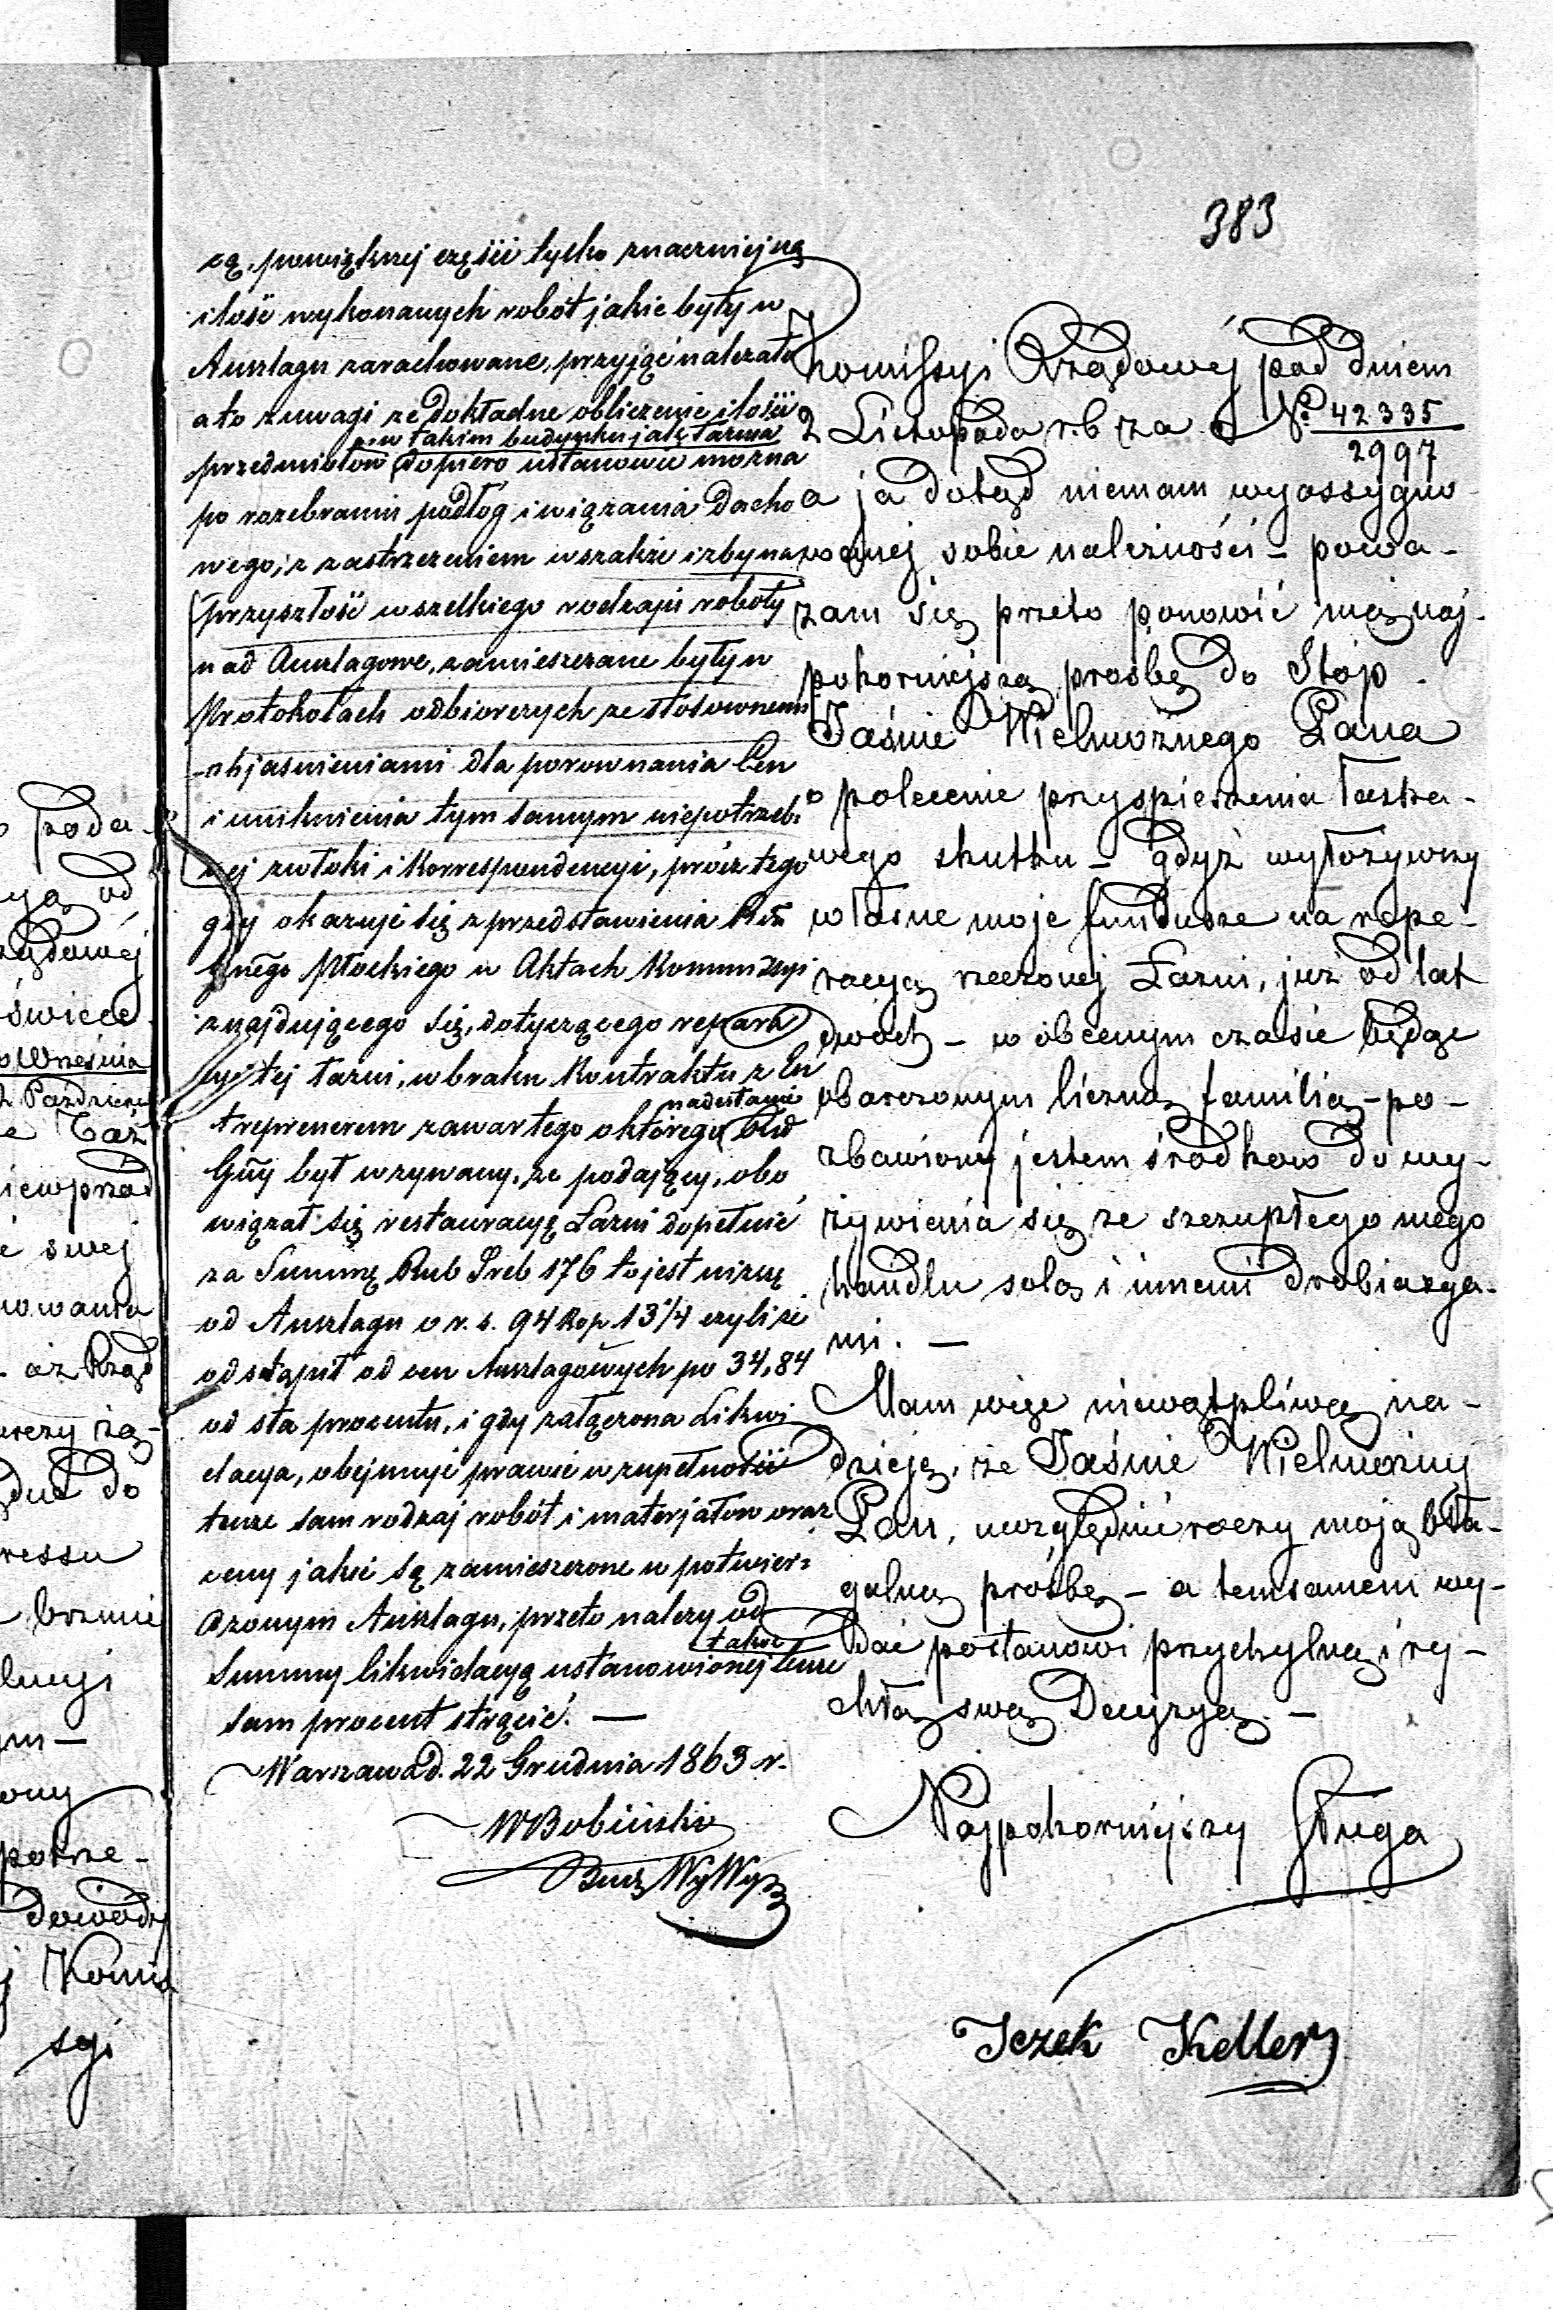 383
cą, powiększej części tylko znaczniejszą
ilość wykonanych robót jakie były w
Anszlagu zarachowane, przyjąć należało
a to z uwagi że dokładne obliczenie ilości
w takim budynku jak Łaźnia
przedmiotów dopiero ustanowić można
po rozebraniu podłóg i wiązania Dacho
wego, z zastrzeżeniem wszakże iżby na
przyszłość wszelkiego rodzaju roboty
nad Anszlagowe, zamieszczane były w
Protokołach odbiorczych ze stosownemi
objaśnieniami dla porównania Cen
i uniknienia tym samym niepotrzeb-
nej zwłoki i Korrespondencyi, prócz tego
gdy okazuje się z przedstawienia
Płockiego w Aktach Kommissyi
znajdującego się, dotyczącego repara
cyi tej łaźni, w braku Kontraktu z En
trepenerem zawartego o którego
nadesłanie
Gñy był wzywany, że podający, obo
wiązał się restauracyę Łaźni dopełnić
za Summę Rub Sreb 176 to jest niżej
od Anszlagu o r. s. 94 kop 13 1/4 czyli że
odstąpił od cen Anszlagowych po 34,84
od sta procentu, i gdy załączona Likwi
dacya, obejmuje prawie w zupełności
tenże sam rodzaj robót i materjałów oraz
ceny jakie są zamieszczone w potwier-
dzonym Anszlagu, przeto należy od
Summy likwidacyą ustanowionej tenże
sam procent strącić. —
Warszawa d. 22 Grudnia 1863 r.
WBobiński
Bud WyWyz
Kommissyi Rządowéj pod dniem
2 Listopada r.b za No 42335
2997
a ja dotąd niemam wyassygno
wanej sobie należności – powa-
żam się przeto ponowić mą naj-
pokorniejszą prośbę do Stóp
Jaśnie Wielmożnego Pana
o polecenie przyspieszenia łaska-
wego skutku – gdyż wyłożywszy
własne moje fundusze na repe-
racyą rzeczonej Łaźni, już od lat
dwóch – w obecnym czasie będąc
obarczonym liczną familią – po-
zbawiony jestem środkow do wy-
żywienia się ze szczupłego mego
handlu solą i innemi drobiazga-
mi. —
Mam więc niewątpliwą na-
dzieję, że Jaśnie Wielmożny
Pan, uwzględnić raczy moją bła-
galną prośbę – a temsamem wy-
dać postanowi przychylną i ry-
chłą swą Decyzyą. –
Najpokorniejszy Sługa
Iczek Keller